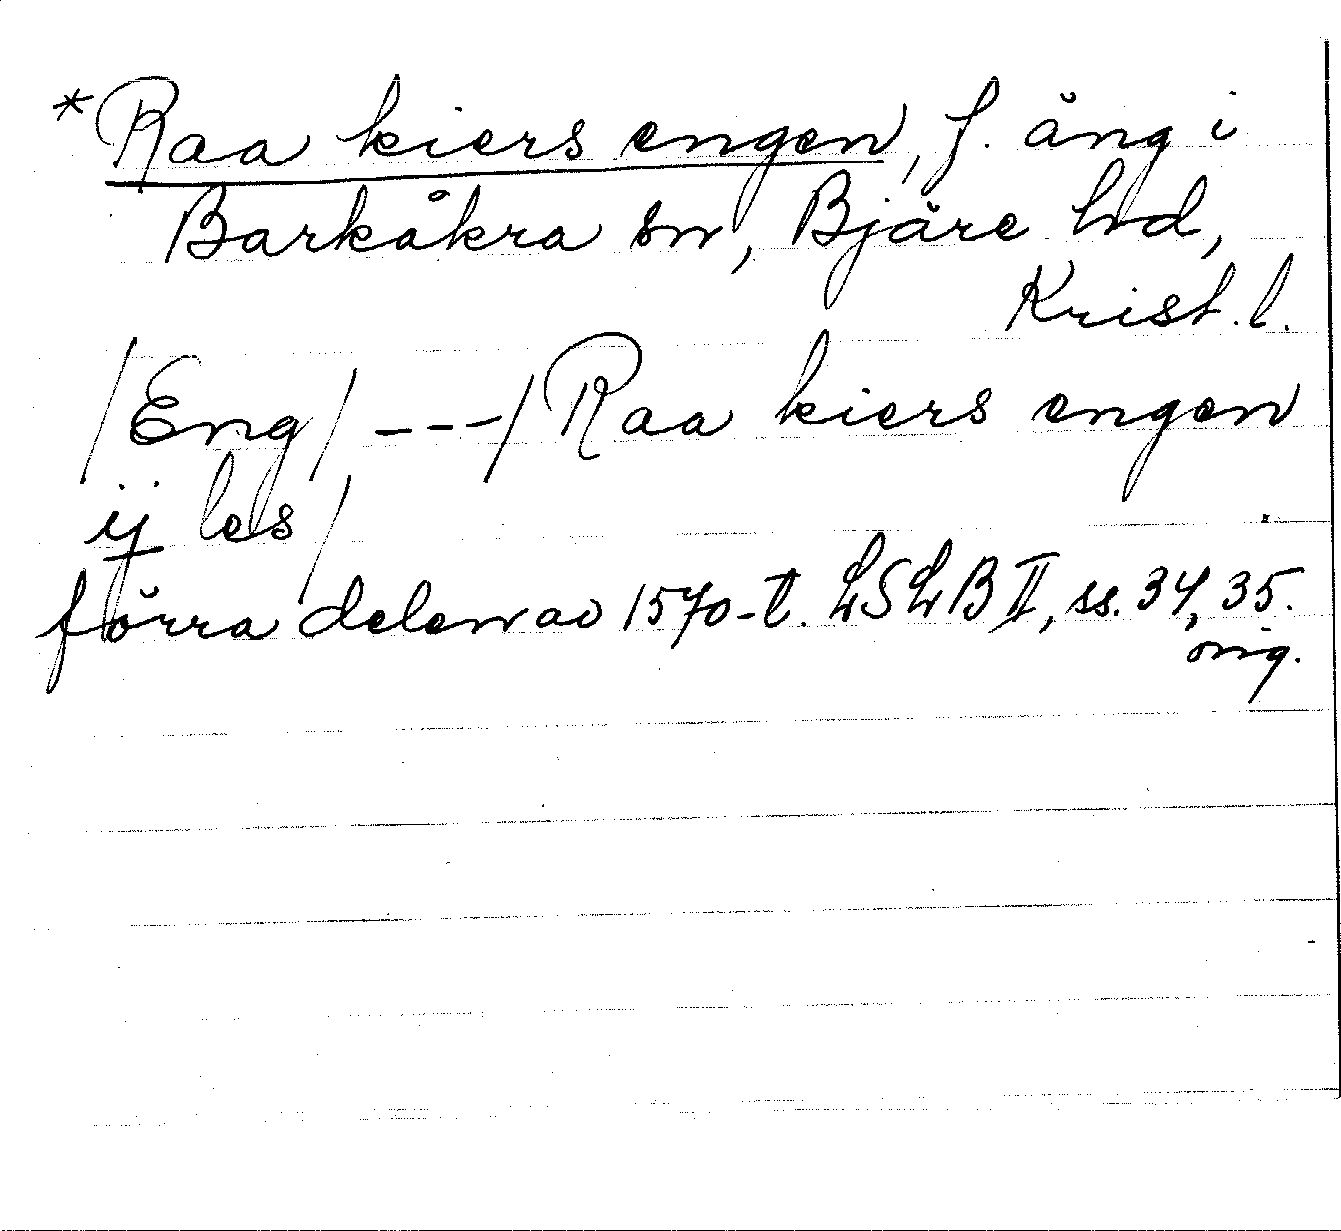 *Raa kiers engen, f. äng i
Barkåkra sn, Bjäre hd,
Krist. l.
/Eng/ ---/Raa kiers engen
ij les/
förra delen av 1570-t. LSLB II, ss. 34, 35.
orig.